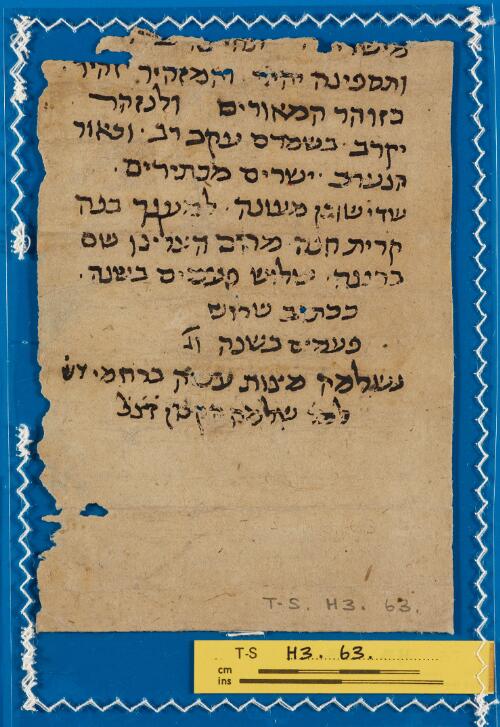 ותספינה יהיר והמזהיר זהיר
כזוהר המאורים ולנזהר
יקרב בשמרם עקב רב ונאור
ישרים מכתירים
שדי שוכן מעונה למענך בנה
קרית חנה
ברינה שלוש פעמים בשנה
ככתוב שלוש
פעמים בשנה וג
נשלמה מצות עשה ברחמי
שלמה הקטן
T-S. H3. 63.
T-S H3. 63.
cm
ins